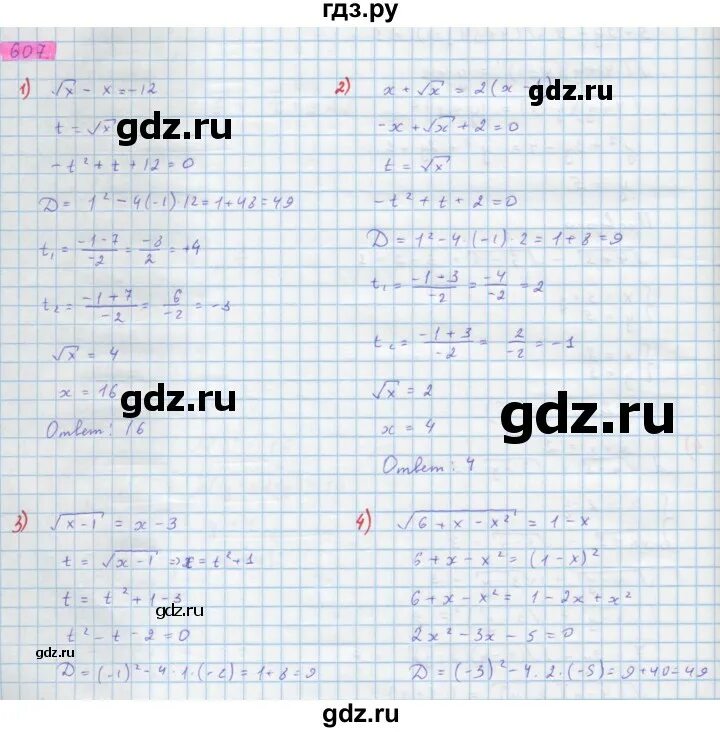 гдз.ру
607
1) √x - x = -12
t = √x
-t² + t + 12 = 0
D = 1² - 4(-1)·12 = 1 + 48 = 49
t₁ = (-1-7)/-2 = -8/2 = +4
t₂ = (-1+7)/-2 = 6/-2 = -3
√x = 4
x = 16
Ответ: 16
2) x + √x = 2(x
-x + √x + 2 = 0
t = √x
-t² + t + 2 = 0
D = 1² - 4·(-1)·2 = 1 + 8 = 9
t₁ = (-1+3)/-2 = -4/-2 = 2
t₂ = (-1+3)/-2 = 2/-2 = -1
√x = 2
x = 4
Ответ: 4
3) √(x-1) = x - 3
t = √(x-1) => x = t² + 1
t = t² + 1 - 3
t² - t - 2 = 0
D = (-1)² - 4·1·(-2) = 1 + 8 = 9
4) √(6 + x - x²) = 1 - x
6 + x - x² = (1 - x)²
6 + x - x² = 1 - 2x + x²
2x² - 3x - 5 = 0
D = (-3)² - 4·2·(-5) = 9 + 40 = 49
gdz.ru
gdz.ru
gdz.ru
gdz.ru
gdz.ru
gdz.ru
gdz.ru
gdz.ru
gdz.ru